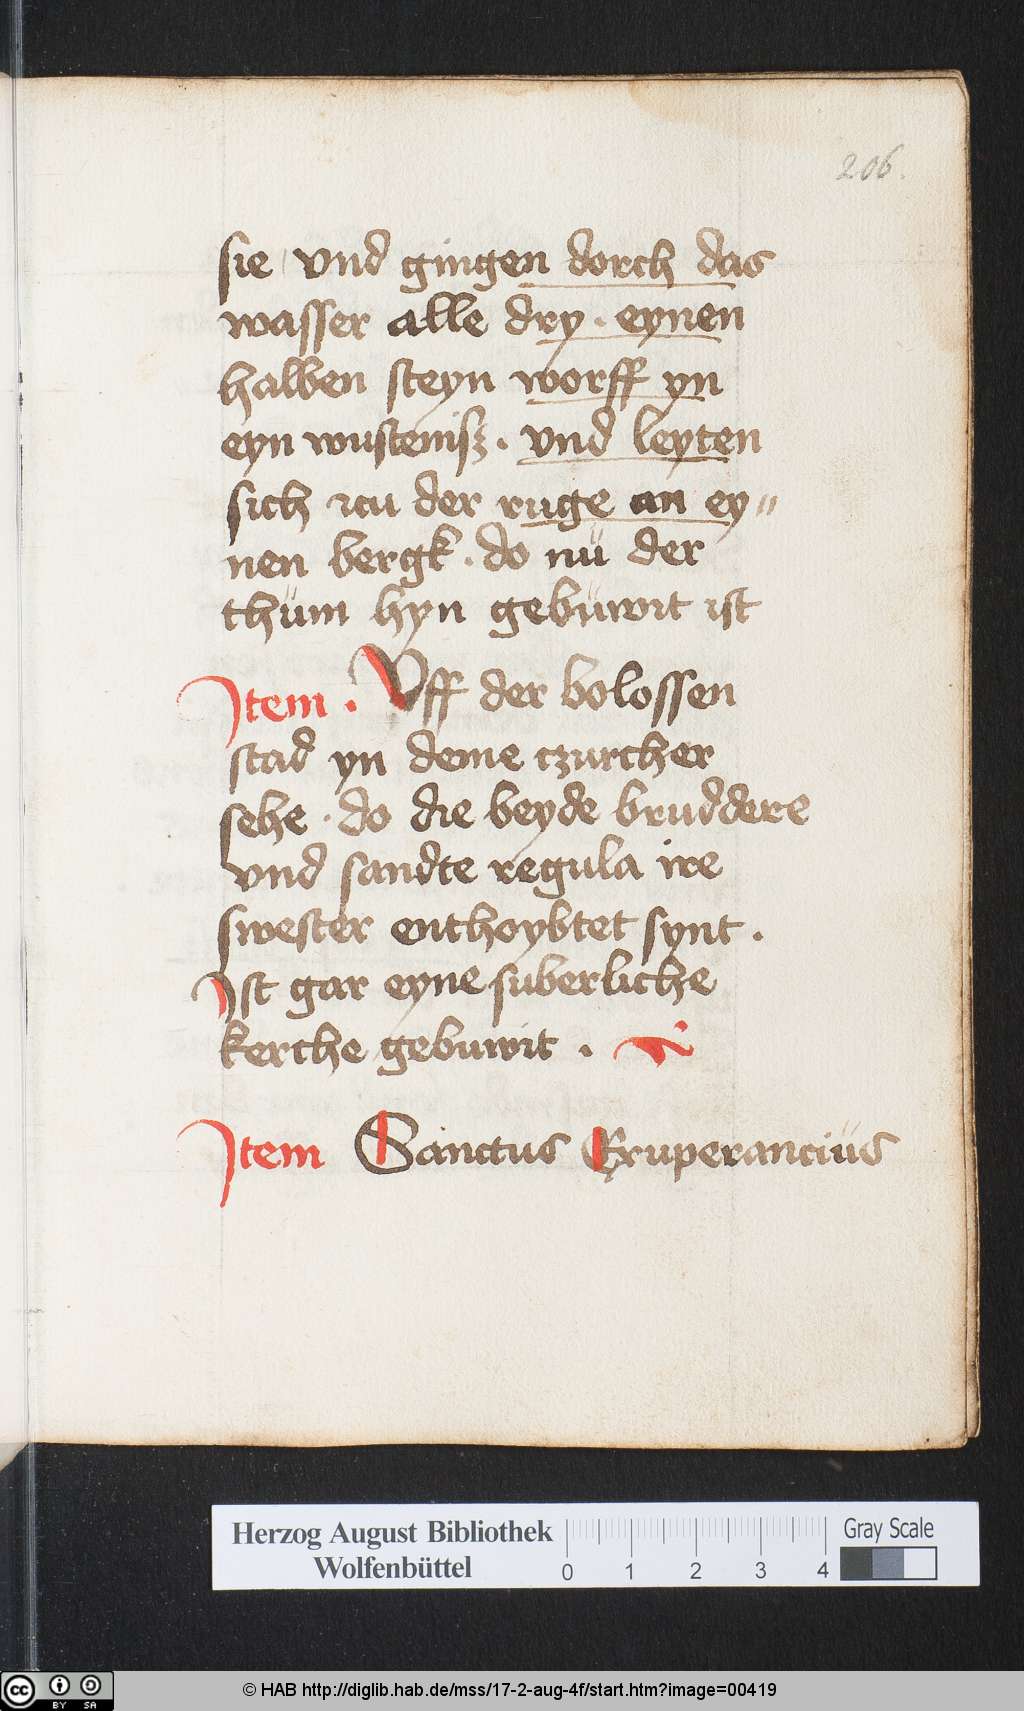 206.
sie vnd gingen dorch das
wasser alle dry . eynen
halben steyn worff yn
eyn wustenisz . vnd leyten
sich zcu der ruge an ey〃
nen bergk . do nü der
thüm hyn gebüwit ist
Item . Vff der bolossen
stad yn deme czurcher
sehe . do die beyde bruddere
vnd sandte regula ire
swester enthoybtet synt .
Ist gar eyne suberliche
kerche gebuwit .
Item Sanctus Exuperanciüs
Herzog August Bibliothek
Wolfenbüttel
0 1 2 3 4
Gray Scale
cc BY SA
© HAB http://diglib.hab.de/mss/17-2-aug-4f/start.htm?image=00419